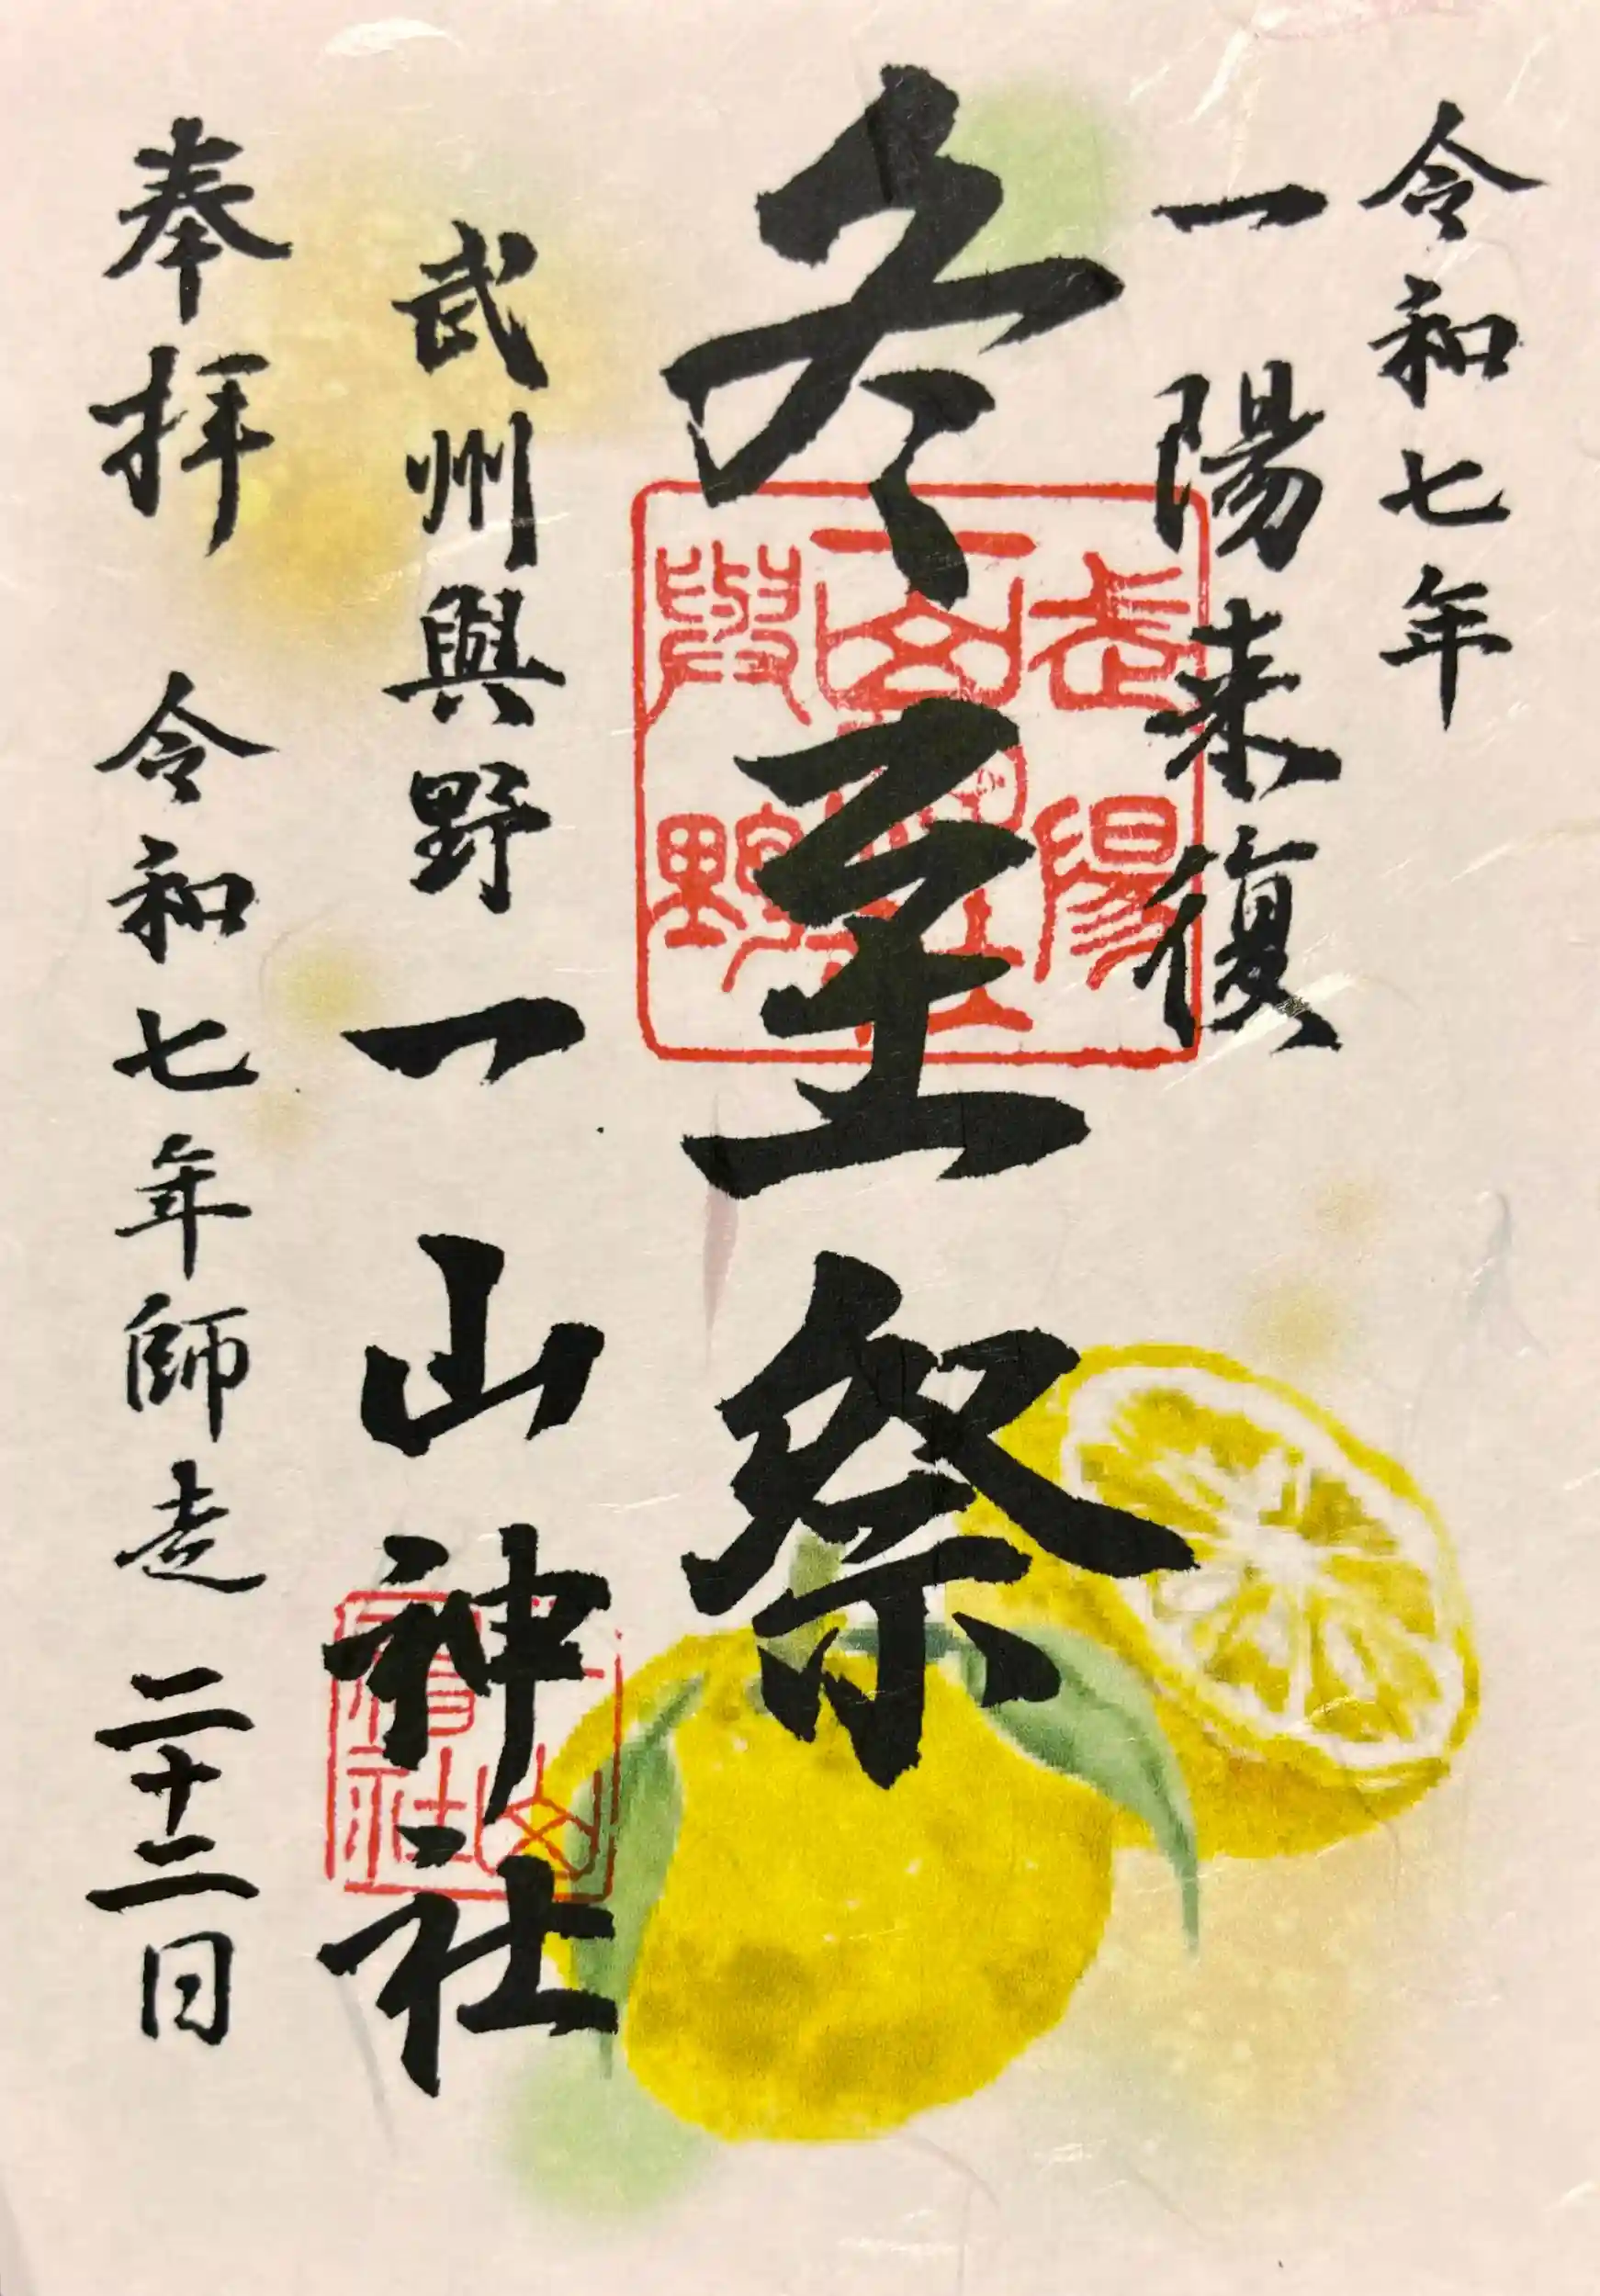 令和七年
一陽来復
冬至祭
武州與野一山神社
奉拝 令和七年師走二十二日
武陽
與野